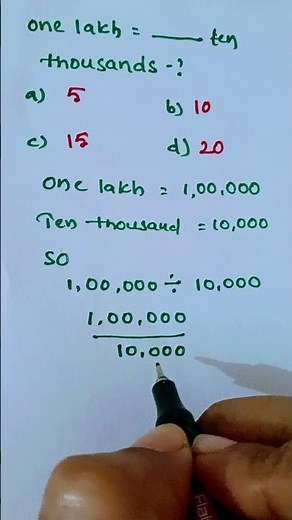 one lakh = ___ ten
thousands -?
a) 5
b) 10
c) 15
d) 20
one lakh = 1,00,000
Ten thousand = 10,000
SO
1,00,000 ÷ 10,000
1,00,000
10,000